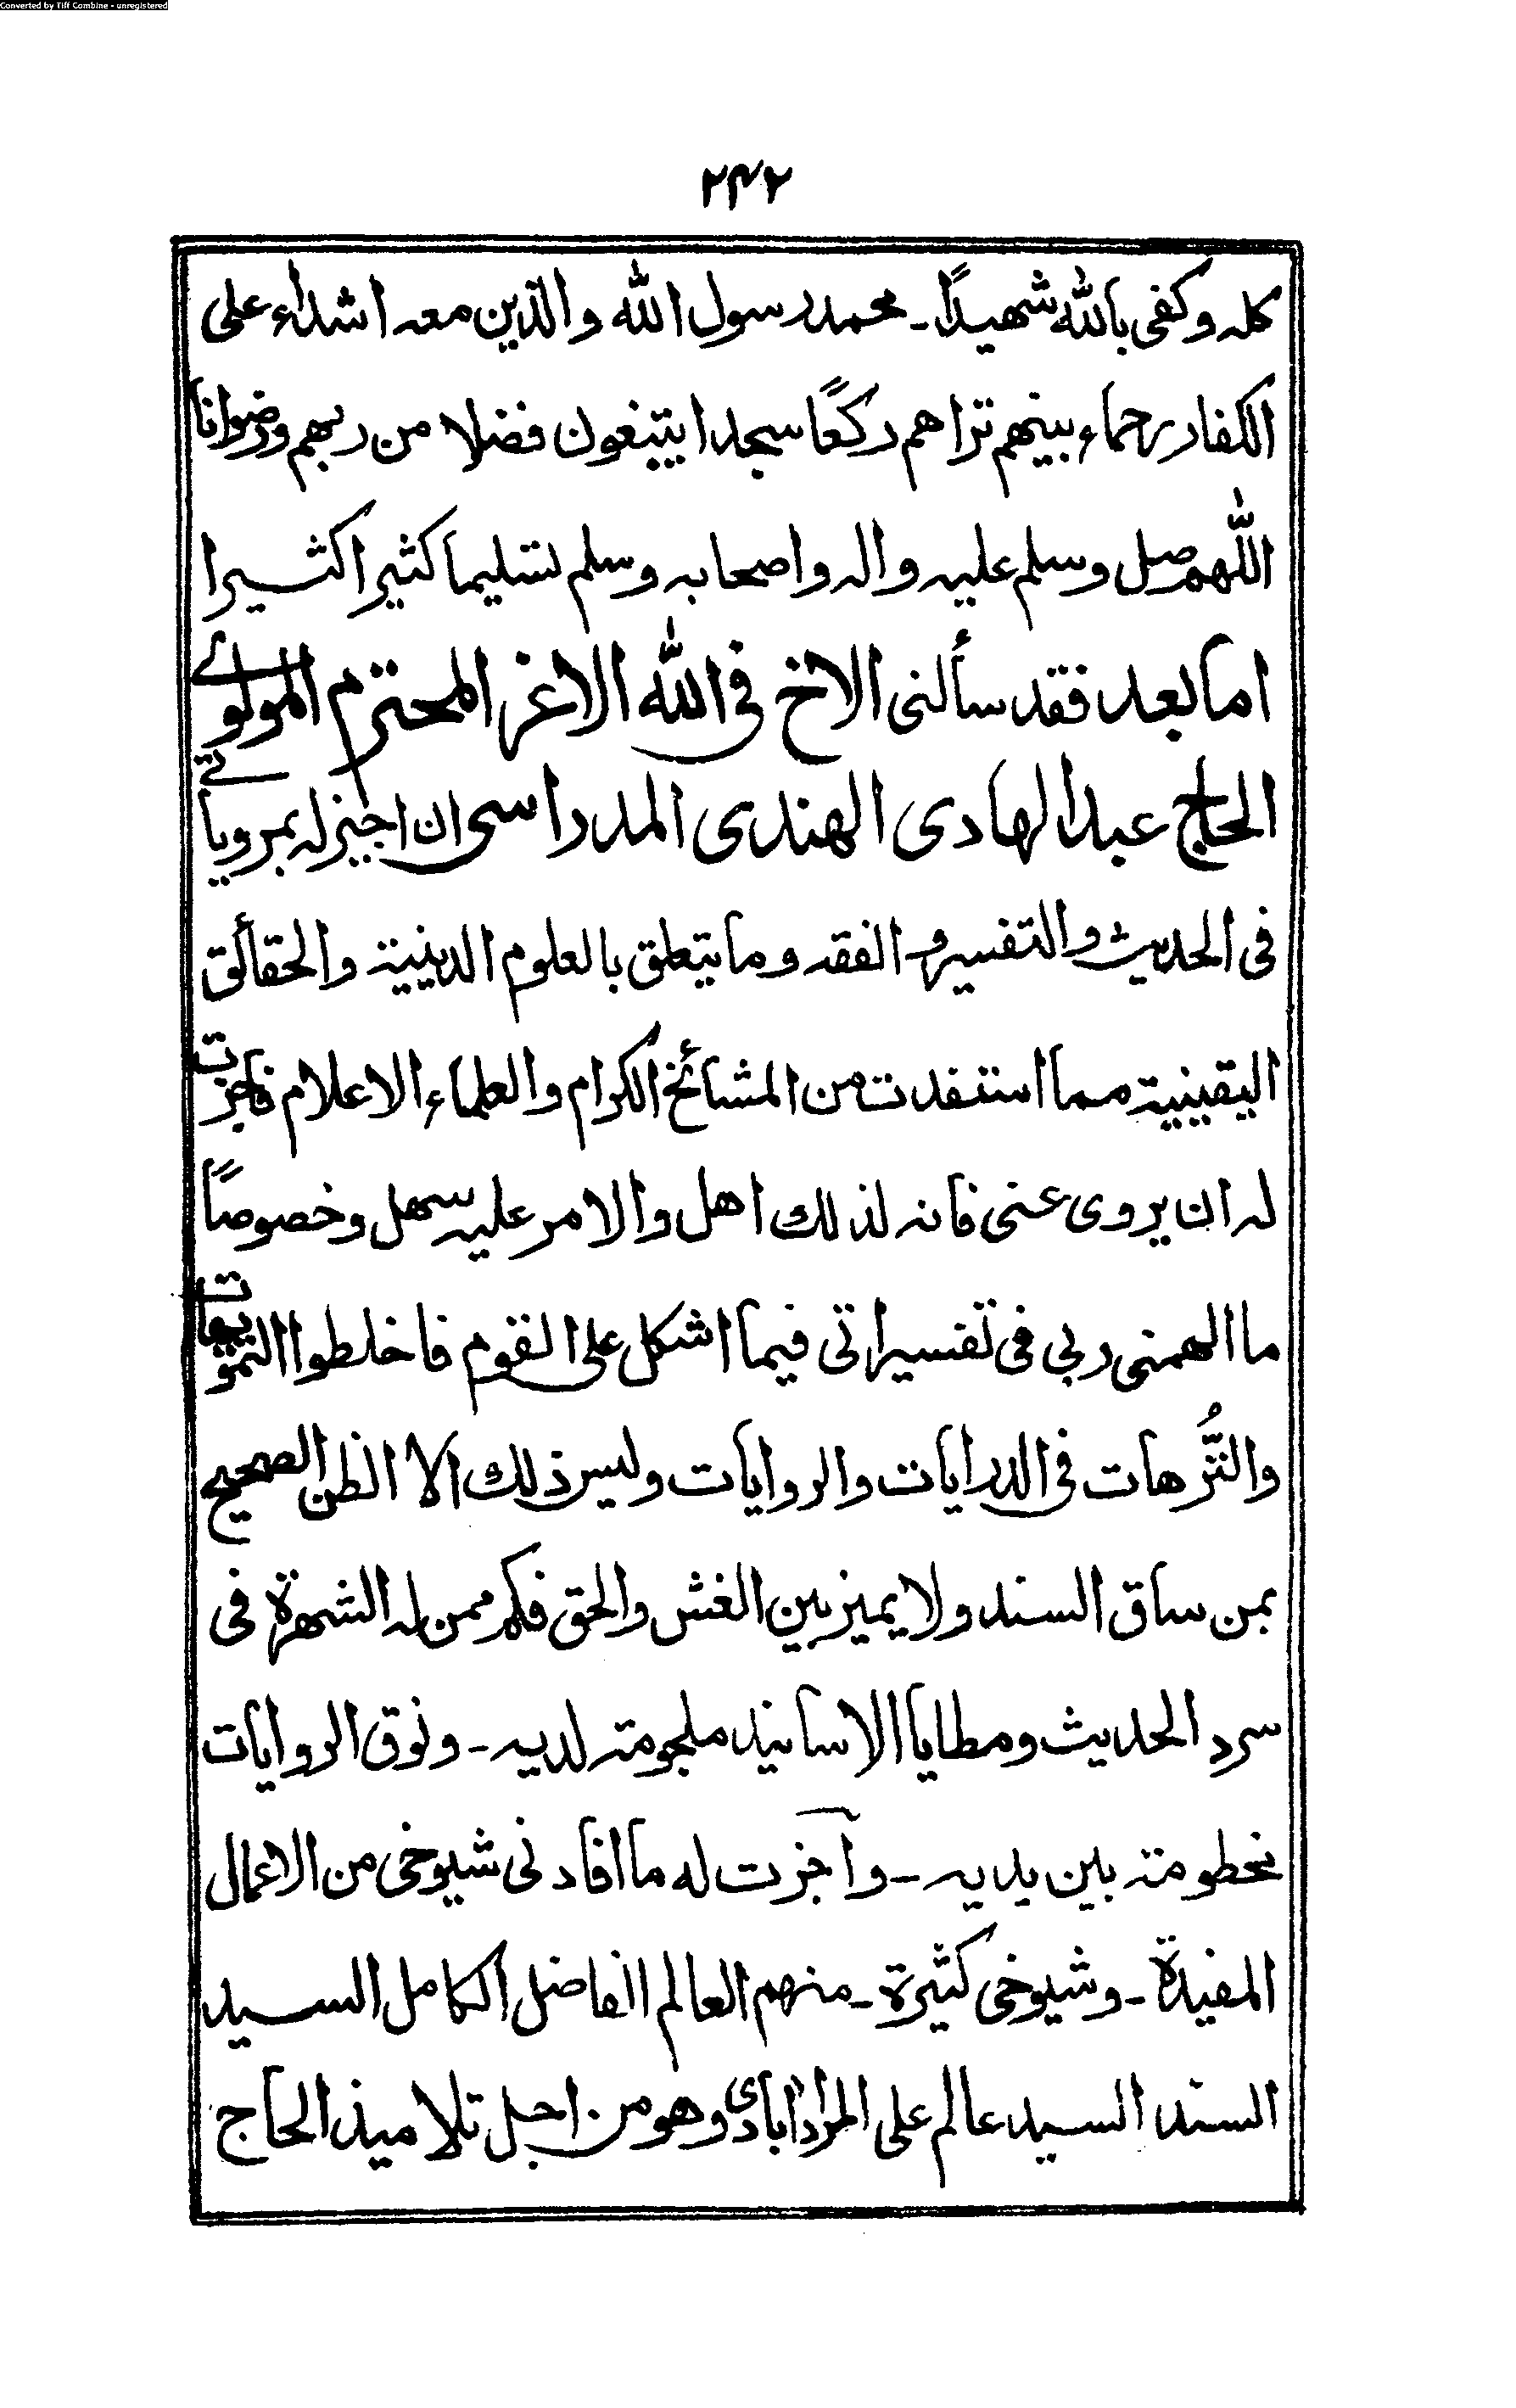 Converted by Tiff Combine - unregistered
۲۴۲
كله وكفى بالله شهيدًا۔ محمد رسول الله والذين معه اشداء على
الكفار رحماء بينهم تراهم ركعًا سجدا يبتغون فضلا من ربهم ورضوانا
اللهم صل وسلم عليه واله واصحابه وسلم تسليما كثيرا كثيرا
اما بعد فقد سألنى الاخ فى الله الاغر المحترم المولوے
الحاج عبد الهادى الهندى المدراسى ان اجيز له بمروياتے
فى الحديث والتفسير و الفقه وما يتعلق بالعلوم الدينية والحقائق
اليقينية مما استفدت من المشائخ الكرام والعلماء الاعلام فاجزت
له ان يروى عنى فانه لذلك اهل والامر عليه سهل وخصوصاً
ما الهمنى ربى فى تفسيراتى فيما اشكل على القوم فاخلطوا التمويهات
والتُّرهات فى الدرايات والروايات وليس ذلك الا الظن الصحيح
بمن ساق السند ولا يميز بين الغش والحق فكم ممن له الشهرة فى
سرد الحديث ومطايا الاسانيد ملجومة لديه ۔ ونوق الروايات
مخطومة بين يديه ۔ وآجزت له ما افادنى شيوخى من الاعمال
المفيدة ۔ وشيوخى كثيرة ۔ منهم العالم الفاضل الكامل السيد
السند السيد عالم على المرادآبادى وهو من اجل تلاميذ الحاج